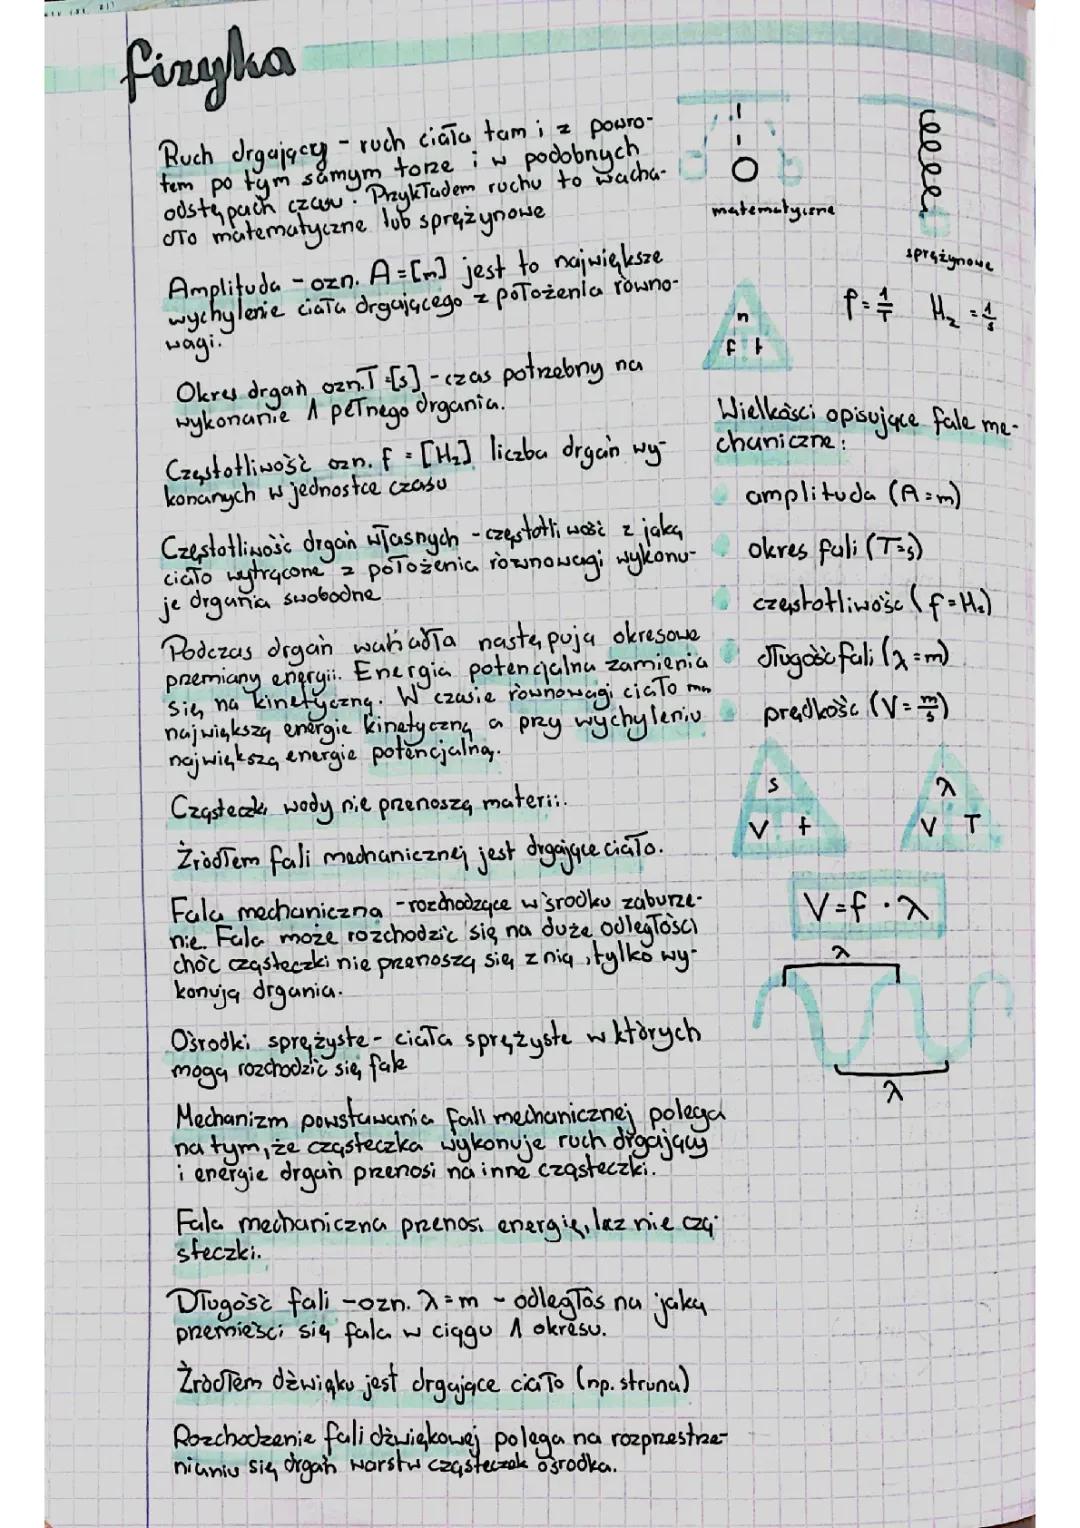 fizyka
Ruch drgający - ruch ciała tam i z powro-
tem po tym samym torze i w podobnych
odstępach czasu. Przykładem ruchu to wacha-
dło matematyczne lub sprężynowe
Amplituda - ozn. A = [m] jest to największe
wychylenie ciała drgającego z położenia równo-
wagi.
Okres drgań ozn. T = [s] - czas potrzebny na
wykonanie 1 pełnego drgania.
Częstotliwość ozn. f = [Hz] liczba drgań wy-
konanych w jednostce czasu
Częstotliwość drgań własnych - częstotliwość z jaką
ciało wytrącone z położenia równowagi wykonu-
je drgania swobodne
Podczas drgań wahadła następują okresowe
przemiany energii. Energia potencjalna zamienia
się na kinetyczną. W czasie równowagi ciało ma
największą energie kinetyczną a przy wychyleniu
największą energie potencjalną.
Cząsteczki wody nie przenoszą materii.
Źródłem fali mechanicznej jest drgające ciało.
Fala mechaniczna - rozchodzące w środku zaburze-
nie. Fala może rozchodzić się na duże odległości
choć cząsteczki nie przenoszą się z nią, tylko wy-
konują drgania.
Ośrodki sprężyste - ciała sprężyste w których
mogą rozchodzić się fale
Mechanizm powstawania fali mechanicznej polega
na tym, że cząsteczka wykonuje ruch drgający
i energie drgań przenosi na inne cząsteczki.
Fala mechaniczna przenosi energię, lecz nie czą-
steczki.
Długość fali - ozn. λ = m - odległoś na jaką
przemieści się fala w ciągu 1 okresu.
Źródłem dźwięku jest drgające ciało (np. struna)
Rozchodzenie fali dźwiękowej polega na rozprzestrze-
nianiu się drgań warstw cząsteczek ośrodka.
matematyczne
sprężynowe
n
f t
f = 1/T Hz = 1/s
Wielkości opisujące fale me-
chaniczne:
amplituda (A = m)
okres fali (T = s)
częstotliwość (f = Hz)
długość fali (λ = m)
prędkość (V = m/s)
s
V t
λ
V T
V = f · λ
λ
λ